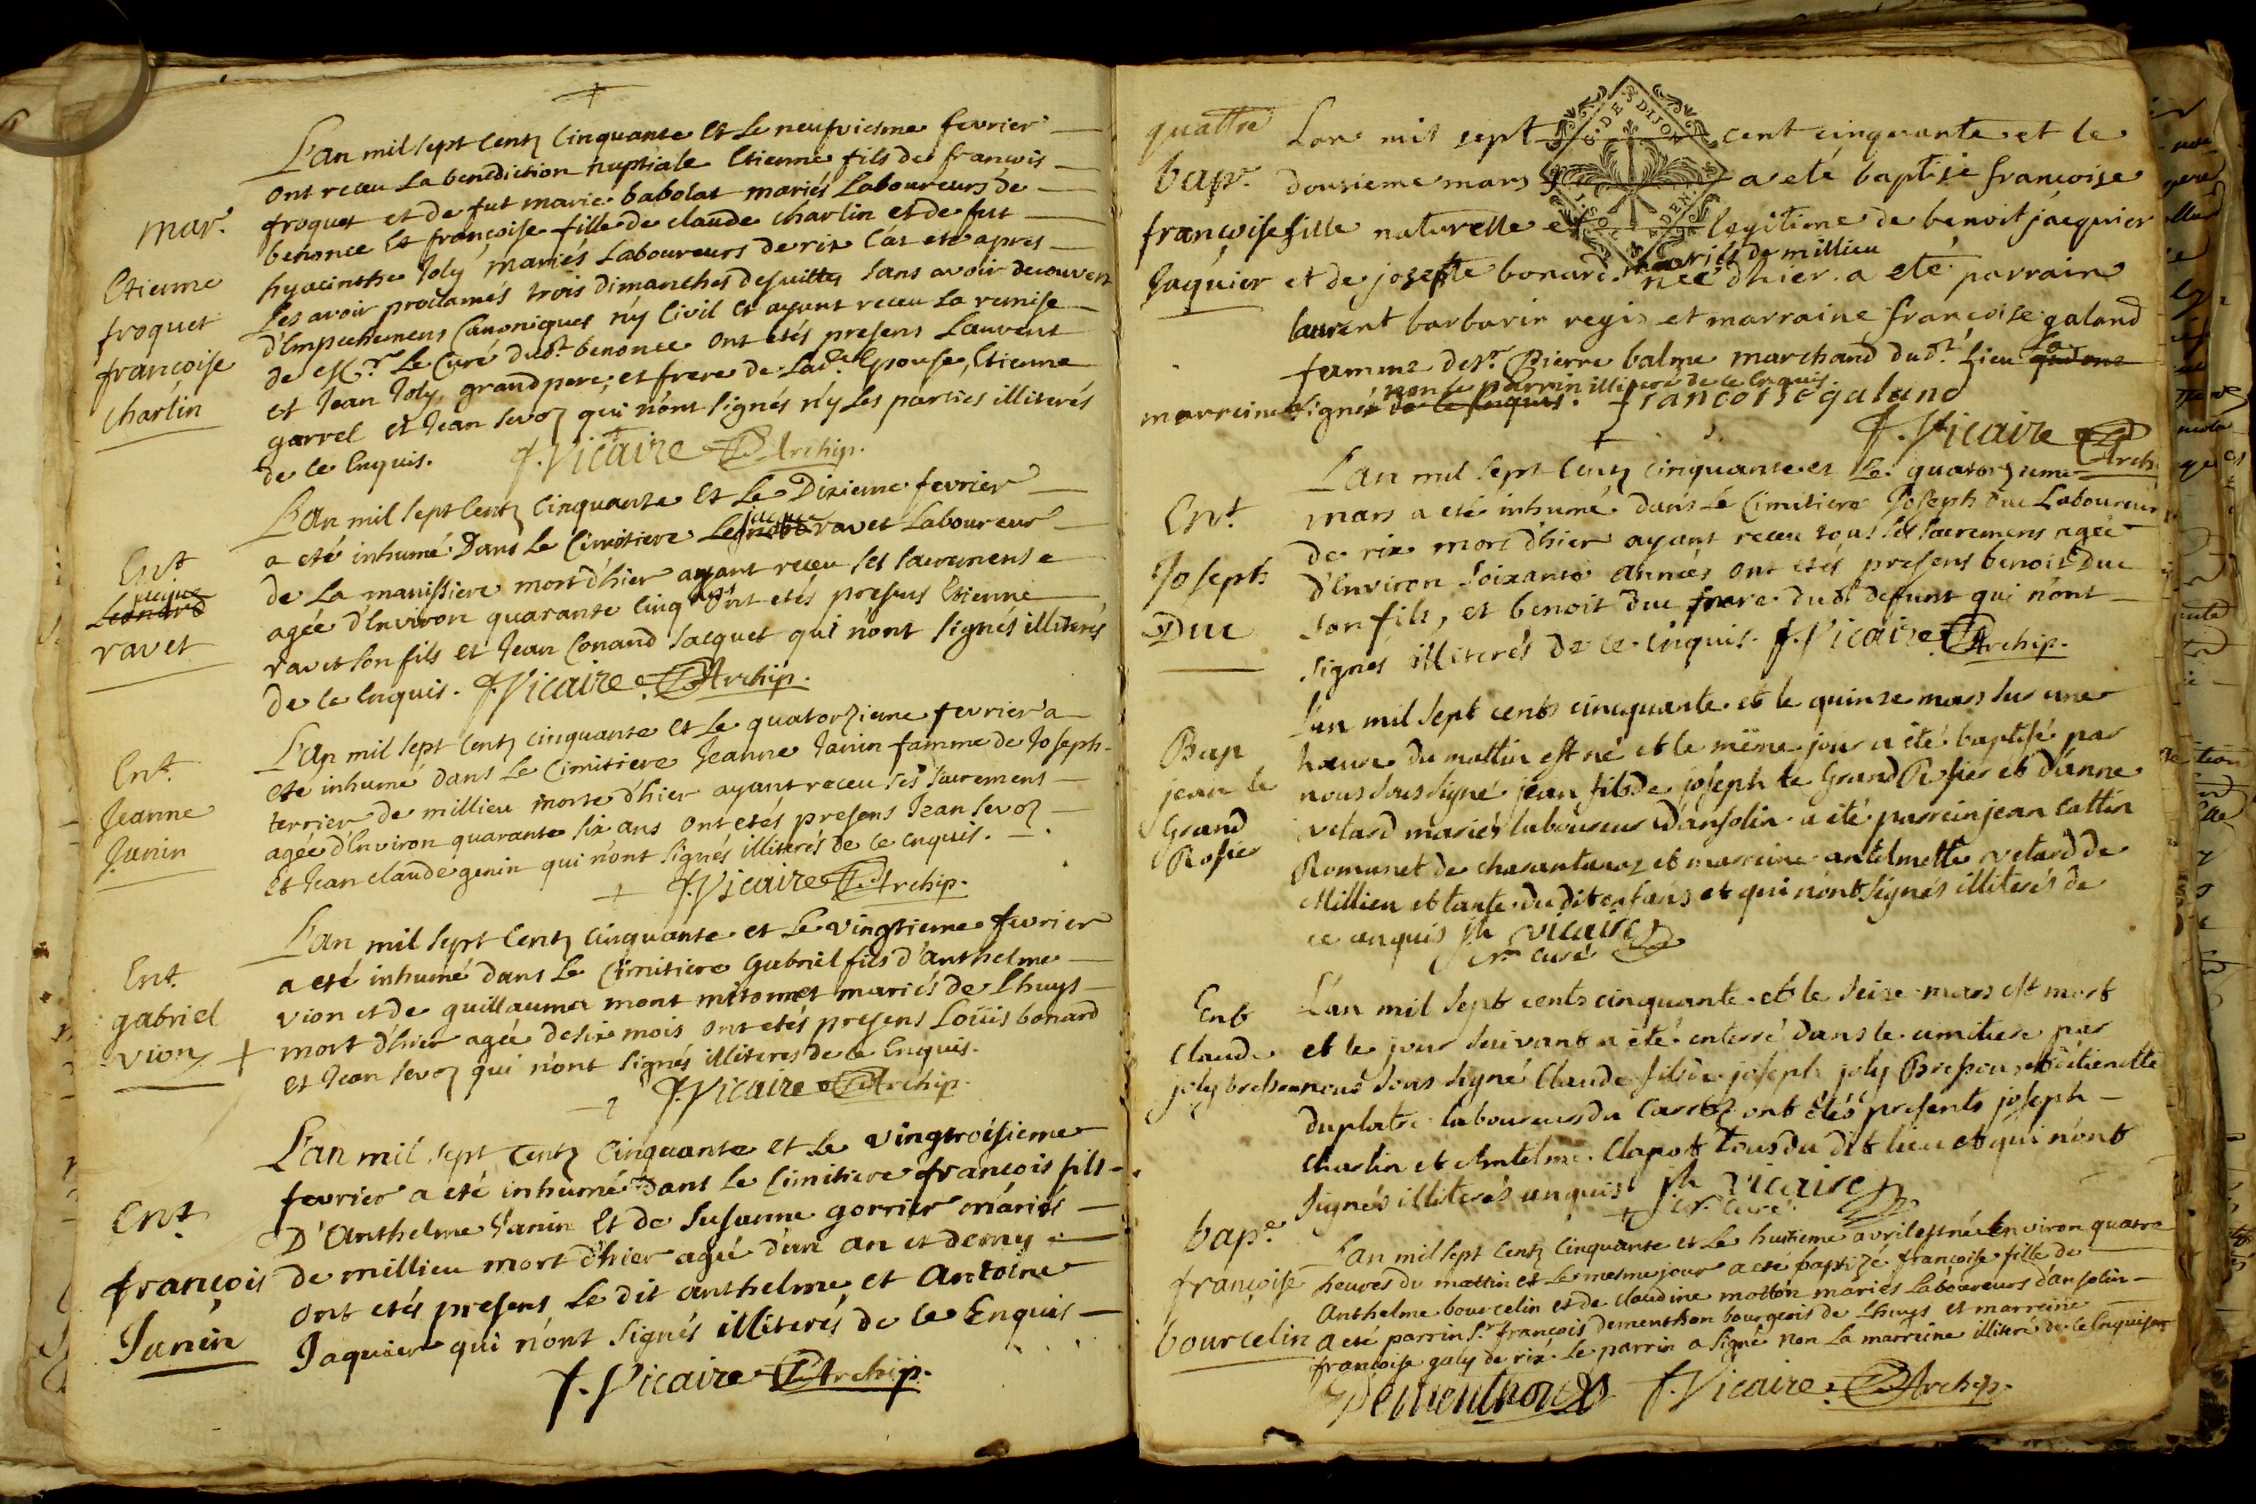 L'an mil sept Centz Cinquante et le neufviesme fevrier
ont receu la benediction nuptiale Etienne fils de francois
mar.
froquet et de fut marie babolat mariés Laboureurs de
benonce et francoise fille de claude charlin et de fut
Etienne
hyacinthe Joly mariés Laboureurs de rix
froquet
Les avoir proclamés trois dimanches desuittes sans avoir decouvert
d'Empechemens Canoniques n'y Civil et ayant receu la remise
francoise
de Mr. Le Curé dudt. benonce ont etés presens Laurent
charlin
et Jean Joly, grand pere, et frere de Lad. Epouse, Etienne
garrel et Jean Sevoz qui n'ont signés n'y Les parties illiterés
de ce Enquis. J. Vicaire Archip.
L'an mil sept Centz Cinquante et Le Dixieme fevrier
jacque
a eté inhumé Dans Le Cimitiere Leonard ravet Laboureur
Ent
de La manissiere mort d'hier ayant receu ses sacremens
jacque
Leonard
agée d'Environ quarante Cinq ont etés presens Etienne
ravet
ravet son fils et Jean Conand Jacquet qui n'ont signés illiterés
de ce Enquis. J. Vicaire Archip.
L'an mil sept Centz cinquante et Le quatorzieme fevrier a
Ent.
eté inhumé dans Le Cimitiere Jeanne Janin famme de Joseph
Jeanne
terrier de millieu morte d'hier ayant receu ses sacremens
Janin
agée d'Environ quarante six ans ont etés presens Jean Sevoz
et Jean claude genin qui n'ont signés illiterés de ce enquis.
J. Vicaire Archip.
L'an mil sept Centz Cinquante et Le vingtieme fevrier
Ent.
a eté inhumé dans Le Cimitiere gabriel fils d'anthelme
gabriel
vion et de guillauma mont mitonnet mariés de Lhuys
vion
mort d'hier agée de six mois ont etés presens Loüis bonard
et Jean Sevoz qui n'ont signés illiteres de ce Enquis.
J. Vicaire Archip.
L'an mil sept Centz Cinquante et Le vingtroisieme
fevrier a eté inhumé dans Le Cimitiere francois fils
Ent.
D'Anthelme Janin et de Susanne gorrier mariés
francois
de millieu mort d'hier agée d'un an et demy
Janin
ont etés presens Le dit anthelme, et Antoine
Jaquier qui n'ont signés illiterés de ce Enquis
J. Vicaire Archip.
G. DE DIJON
quattre
Lan mil sept cent cinquante et le
bapt.
dousieme mars a eté baptisé francoise
francoise
fille naturelle et legitime de benoit jacquier
mariés de millieu
Jaquier
et de josepte bonard née d'hier a eté parrain
laurent barbarin regis et marraine francoise galand
famme de sr. Pierre balme marchand dudt. Lieu
non le parrin illiteré de ce Enquis
marreine signé de ce enquis. francoise galand
J. Vicaire Arch
L'an mil sept Centz cinquante et Le quatorzieme
Ent.
mars a eté inhumé dans Le Cimitiere Joseph Duc Laboureur
Joseph
de rix mort d'hier ayant receu tous ses sacremens agée
Duc
d'Environ soixante années ont etés presens benoit Duc
son fils, et benoit Duc frere dud. defunt qui n'ont
signés illiterés de ce Enquis. J. Vicaire Archip.
L'an mil sept cents cincquante et le quinze mars sur une
Bap
heure du mattin est né et le même jour a été baptisé par
jean le
nous sous signé jean fils de joseph le Grand Rosier et d'anne
Grand
vetard mariés laboureur d'ansolin a été parrein jean cattin
Rosier
Romanet de charantanoz et marreine antelmette vetard de
Millieu et tante du dit enfans et qui n'ont signés illiterés de
ce enquis jh vicaire
curé
L'an mil sept cents cinquante et le seize mars est mort
Ent
et le jour suivant a été enterré dans le cimitiere par
Claude
joly bresson
nous sous signé Claude fils de joseph joly Bresson, et d'étienette
duplatre laboureurs du Carroz ont étés presents joseph
Charlin et Antelme Clapot tous du dit lieu et qui n'ont
signés illiterés enquis jh vicaire
curé
bapt.
L'an mil sept Centz Cinquante et Le huitieme avril est née Environ quatre
francoise
heures du mattin et Le mesme jour a eté baptizé francoise fille de
Anthelme bourcelin et de claudine motton mariés Laboureurs d'ansolin
bourcelin
a eté parrin Sr. francois dementhon bourgeois de Lhuys et marreine
francoise galy de rix. Le parrin a signé non La marreine illiteré de ce Enquise
Dementhon J. Vicaire Archip.